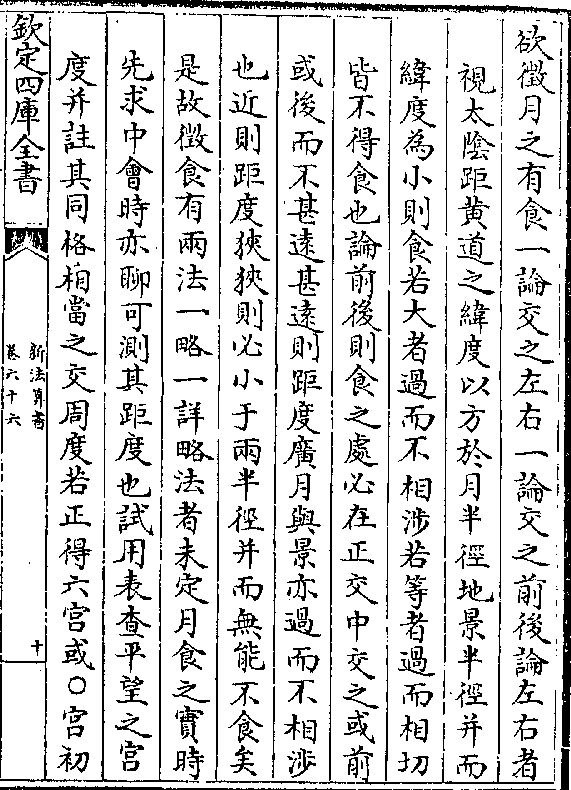 欲徵月之有食一論交之左右一論交之前後論左右者
視太陰距黄道之緯度以方於月半徑地景半徑并而
緯度為小則食若大者過而不相涉若等者過而相切
皆不得食也論前後則食之處必在正交中交之或前
或後而不甚遠甚遠則距度廣月與景亦過而不相涉
也近則距度狹狹則必小于兩半徑并而無能不食矣
是故徵食有兩法一略一詳略法者未定月食之實時
先求中會時亦聊可測其距度也試用表查平望之宫
度并註其同格相當之交周度若正得六宫或〇宫初
欽定四庫全書
新法算書
卷六十六
十